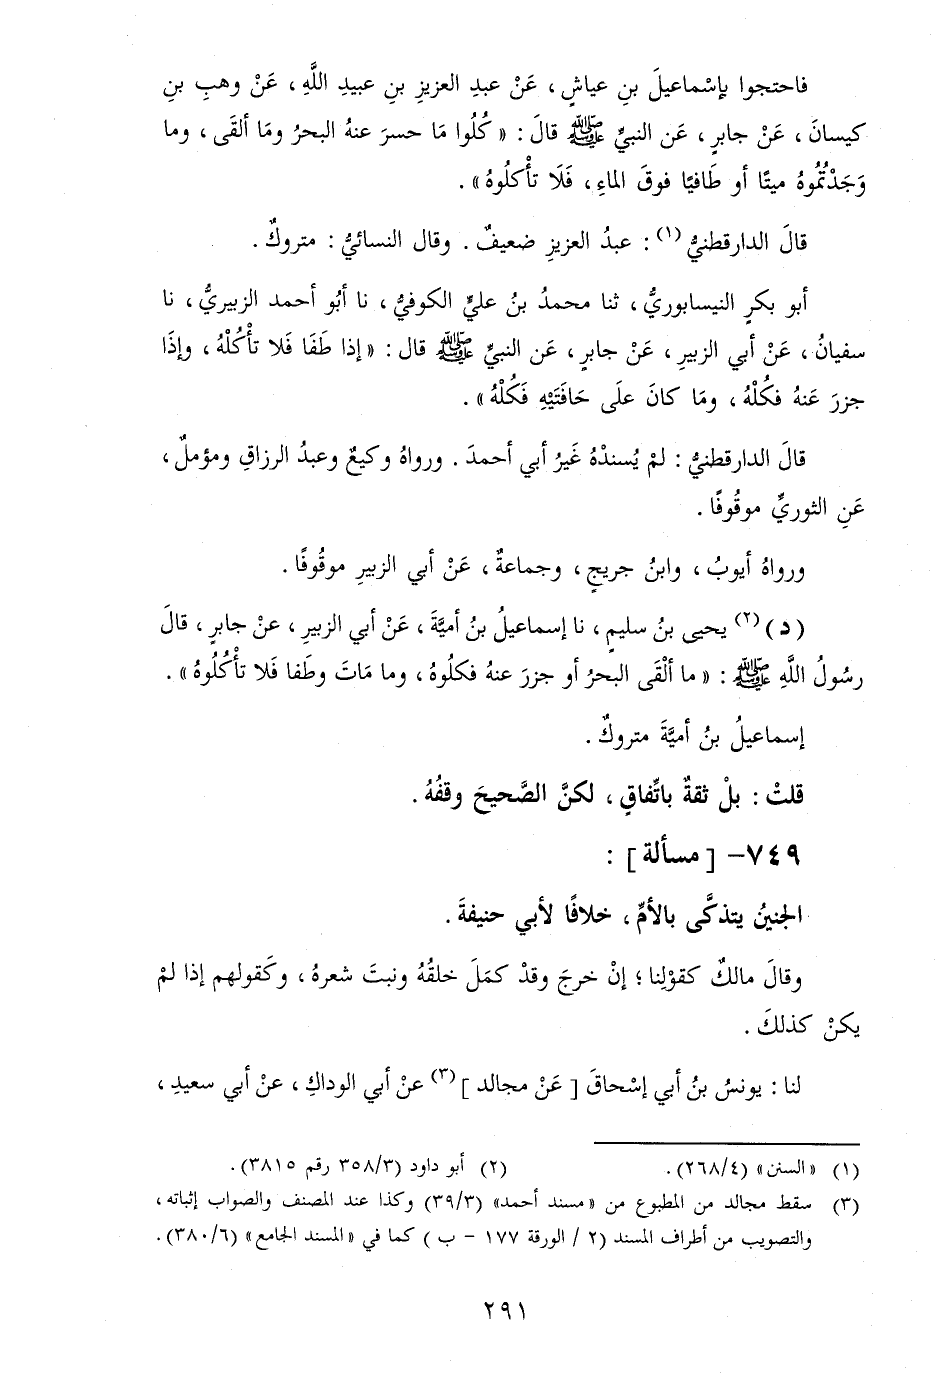 فاحتجوا بإسْماعيلَ بنِ عياشٍ ، عَنْ عبدِ العزيزِ بنِ عبيدِ اللَّهِ ، عَنْ وهبِ بنِ
كيسانَ ، عَنْ جابرٍ ، عَن النبيِّ ﷺ قالَ : « كُلُوا مَا حسرَ عنهُ البحرُ ومَا ألقَى ، وما
وَجَدْتُمُوهُ ميتًا أو طَافيًا فوقَ الماءِ ، فَلَا تأْكلُوهُ » .
قالَ الدارقطنيُّ (١) : عبدُ العزيزِ ضعيفٌ . وقال النسائيُّ : متروكٌ .
أبو بكرٍ النيسابوريُّ ، ثنا محمدُ بنُ عليٍّ الكوفيُّ ، نا أبُو أحمد الزبيريُّ ، نا
سفيانُ ، عَنْ أبي الزبيرِ ، عَنْ جابرٍ ، عَن النبيِّ ﷺ قال : « إذا طَفَا فَلا تأْكُلْهُ ، وإذَا
جزرَ عَنهُ فكُلْهُ ، ومَا كانَ علَى حَافَتَيْهِ فَكُلْهُ » .
قالَ الدارقطنيُّ : لمْ يُسندْهُ غَيرُ أبي أحمدَ . ورواهُ وكيعٌ وعبدُ الرزاقِ ومؤملٌ ،
عَنِ الثوريِّ موقُوفًا .
ورواهُ أيوبُ ، وابنُ جريجٍ ، وجماعةٌ ، عَنْ أبي الزبيرِ موقُوفًا .
( د ) (٢) يحيى بنُ سليمٍ ، نا إسماعيلُ بنُ أميَّةَ ، عَنْ أبي الزبيرِ ، عنْ جابرٍ ، قالَ
رسُولُ اللَّهِ ﷺ : « ما ألْقَى البحرُ أو جزرَ عنهُ فكلُوهُ ، وما مَاتَ وطَفا فَلا تأْكُلُوهُ » .
إسماعيلُ بنُ أميَّةَ متروكٌ .
قلتُ : بلْ ثقةٌ باتِّفاقٍ ، لكنَّ الصَّحيحَ وقفُهُ .
٧٤٩– [ مسألة ] :
الجنينُ يتذكَّى بالأمِّ ، خلافًا لأبي حنيفةَ .
وقالَ مالكٌ كقوْلِنا ؛ إنْ خرجَ وقدْ كمَلَ خلقُهُ ونبتَ شعرهُ ، وكَقولهم إذا لمْ
يكنْ كذلكَ .
لنا : يونسُ بنُ أبي إسْحاقَ [ عَنْ مجالد ] (٣) عنْ أبي الوداكِ ، عنْ أبي سعيدٍ ،
(١) «السنن» (٢٦٨/٤) . (٢) أبو داود (٣٥٨/٣ رقم ٣٨١٥) .
(٣) سقط مجالد من المطبوع من «مسند أحمد» (٣٩/٣) وكذا عند المصنف والصواب إثباته ،
والتصويب من أطراف المسند (٢ / الورقة ١٧٧ – ب ) كما في «المسند الجامع» (٣٨٠/٦) .
٢٩١